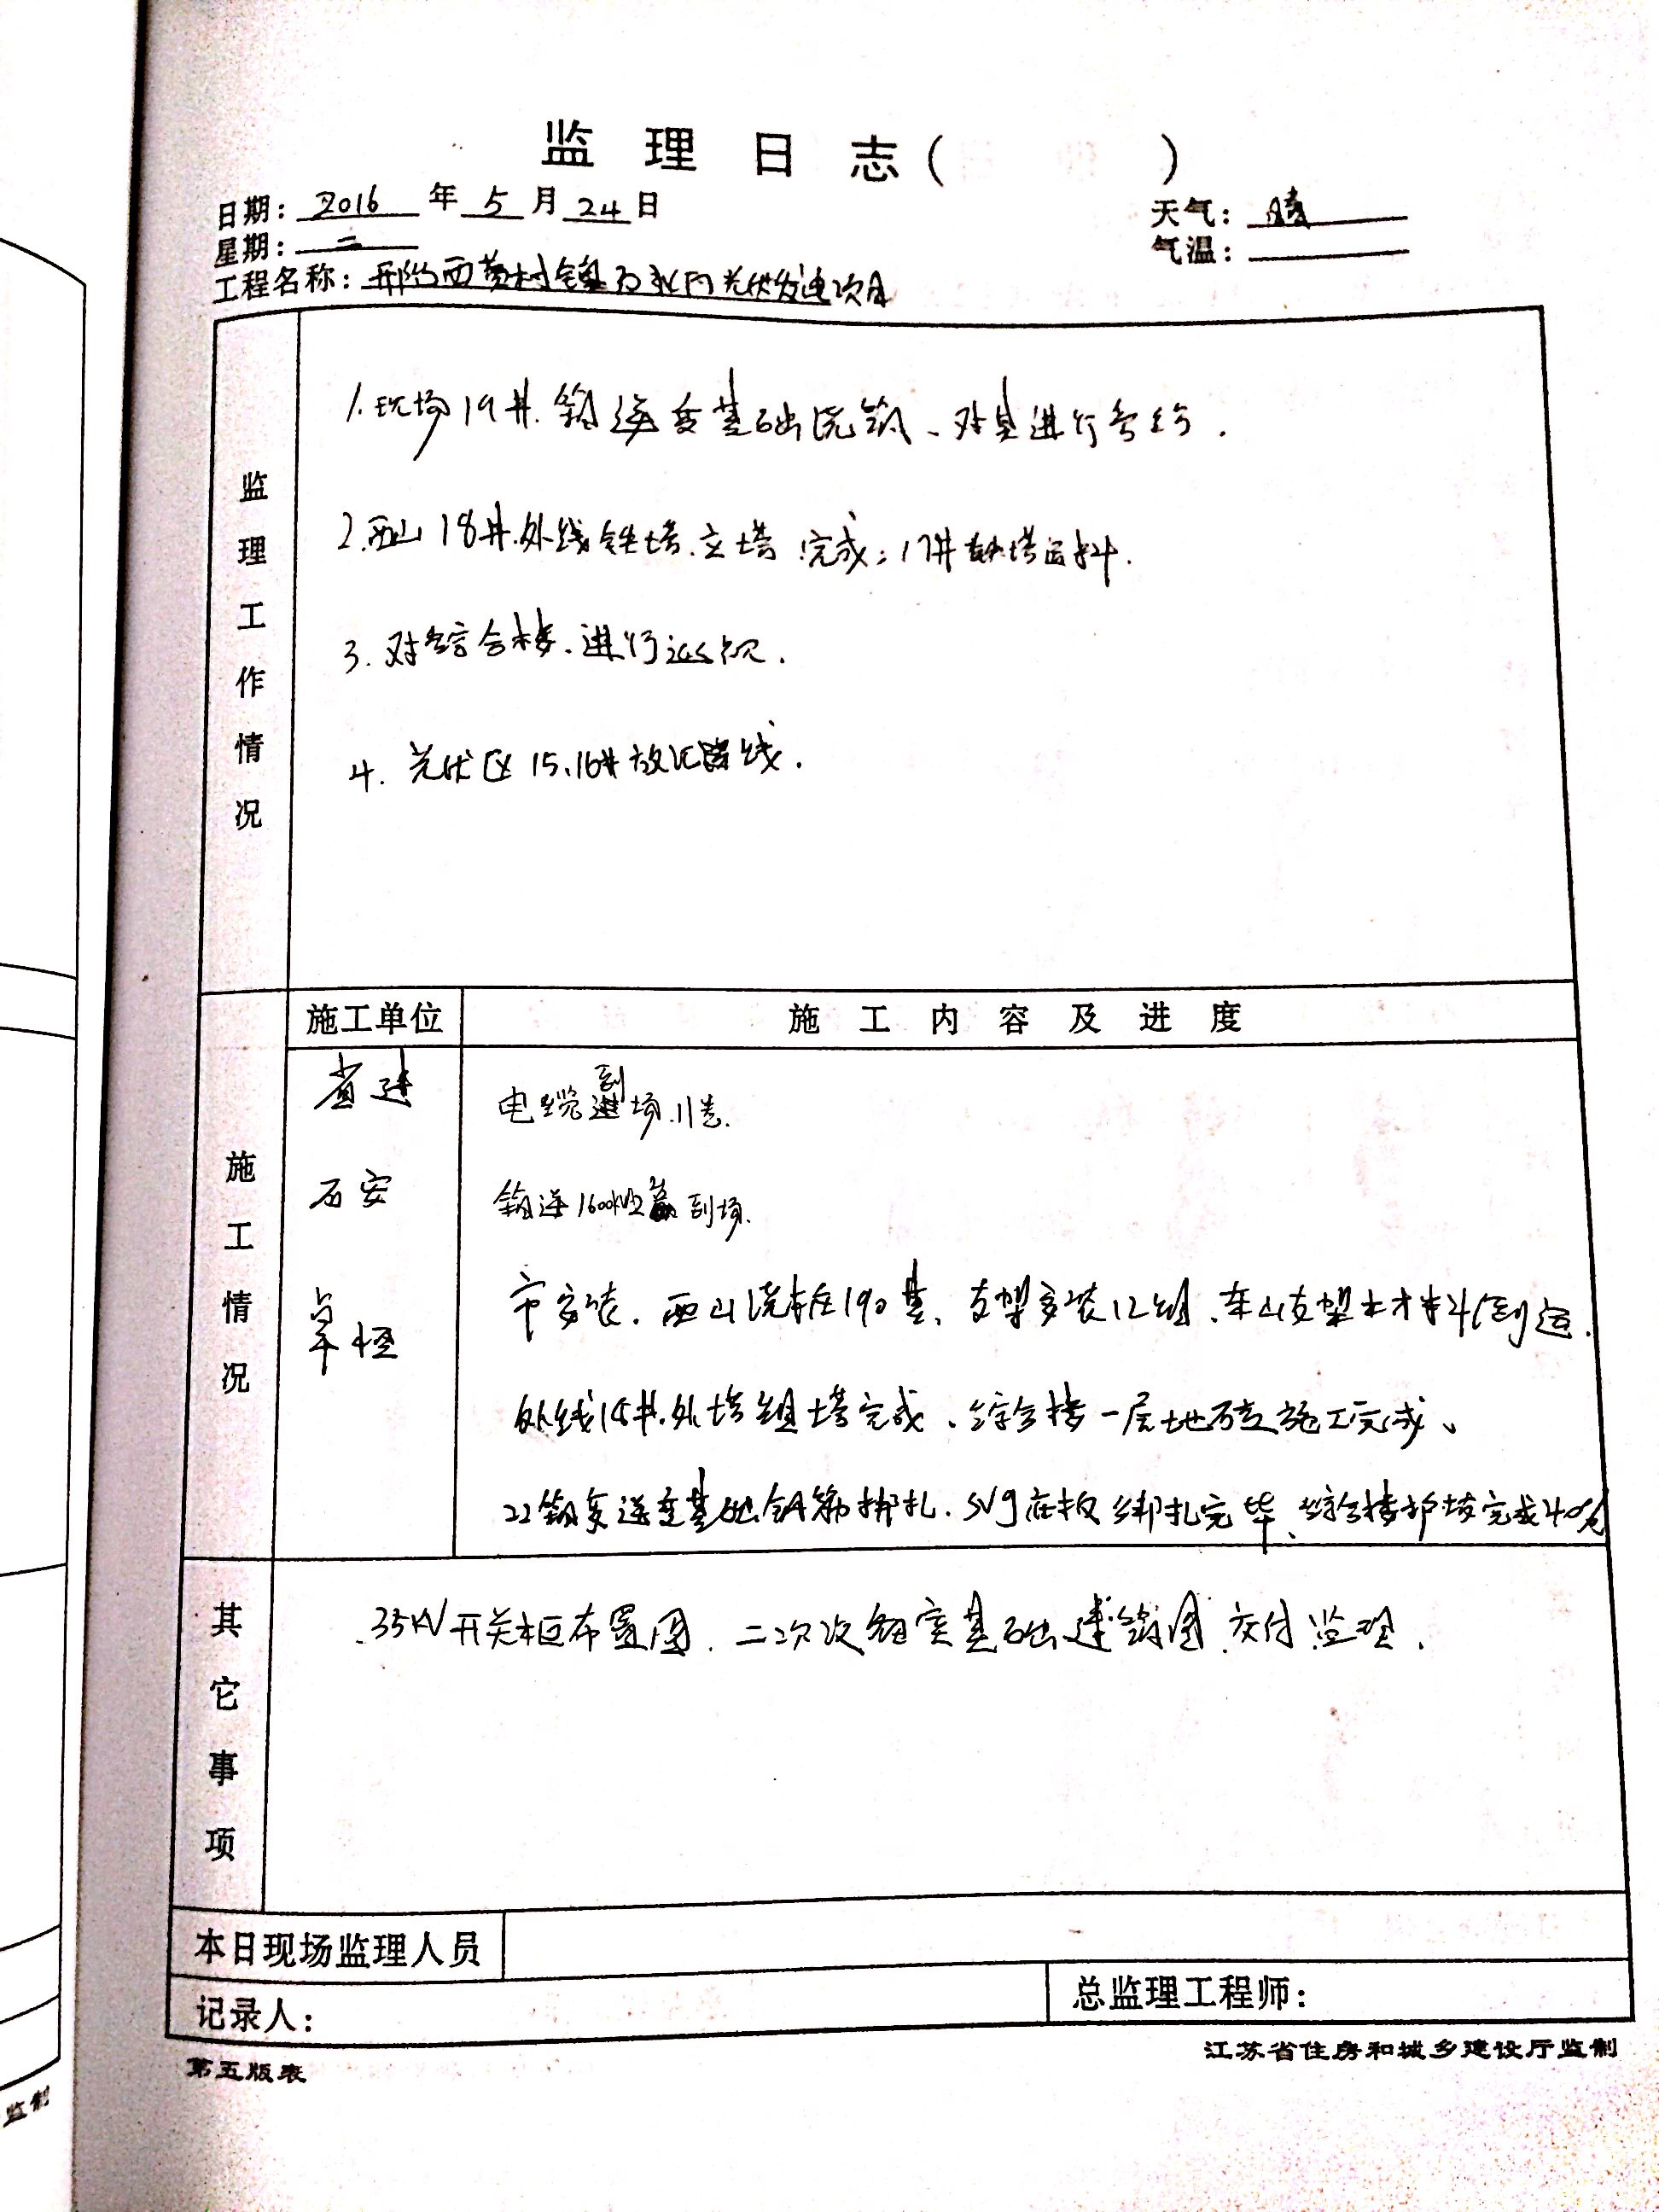 监 理 日 志（ ）
日期：2016 年 5 月 24 日
天气：晴
星期：二
气温：
工程名称：邢台西黄村镇 光伏发电项目
监理工作情况
1.现场19井.箱逆变基础浇筑、对其进行旁站.
2.西山18井.外线铁塔.立塔完成；17井 塔运料.
3.对综合楼.进行巡视.
4.光伏区15.16井放 线.
施工单位
施 工 内 容 及 进 度
施工情况
省建
电缆到场.11盘.
石安
箱逆1600kVA 到场.
卓恒
市安装.西山浇桩190基、支架安装12组.东山支架上材料倒运.
外线18井.外塔组塔完成、综合楼一层地砖施工完成、
22箱变逆变基础钢筋绑扎.SVG底板绑扎完毕、综合楼护坡完成40%
其它事项
35KV开关柜布置图.二次 室基础建筑图.交付监理.
本日现场监理人员
记录人：
总监理工程师：
第五版表
江苏省住房和城乡建设厅监制
监制